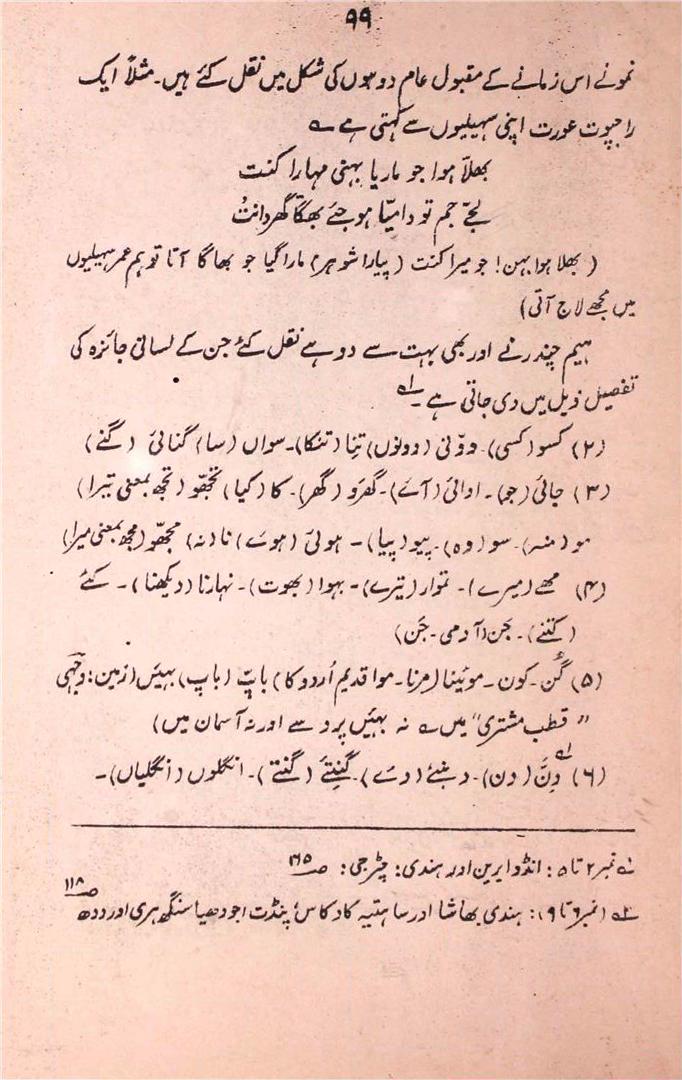 ۹۹
نمونے اس زمانے کے مقبول عام دوہوں کی شکل میں نقل کئے ہیں۔ مثلاً ایک
راجپوت عورت اپنی سہیلیوں سے کہتی ہے ؎
بھلاّ ہوا جو ماریا بہنی مہارا کنت
لجّے جم تو دامیّا ہو جئے بھگّا گھر دانتُ
( بھلا ہوا بہن! جو میرا کنت ( پیارا شوہر) مارا گیا جو بھاگا آتا تو ہم عمر سہیلیوں
میں مجھے لاج آتی)
ہیم چندر نے اور بھی بہت سے دوہے نقل کئے جن کے لسانی جائزہ کی
تفصیل ذیل میں دی جاتی ہے۔ ؎۱
(۲) کسو (کسی)۔ دوّنی (دونوں) تِنا (تنکا)۔ سواں (سا) گنائی (گنے)
(۳) جائی (جو)۔ اوائی (آئے)۔ گھرَو (گھر)۔ کا (کیا) تجھّو (تجھ بمعنی تیرا)
مو (منہ)۔ سو (وہ)۔ پیو (پیا)۔ ہوئی (ہوئے) نا (نہ) مجھّو (مجھ بمعنی میرا)
(۴) مھے (میرے)۔ تموار (تیرے)۔ بہوا (بھوت)۔ نہارنا (دیکھنا)۔ کئے
(کتنے)۔ جَن (آدمی۔ جَن)
(۵) گُن۔ کون۔ موئینا (مرنا۔ موا قدیم اُردو کا) باپّ (باپ) بہیئں (زمین: وجہی
"قطب مشتری" میں ؎ نہ بہیئں پر دسے اور نہ آسمان میں)
(۶) ؎۲ دِنَّ (دن)۔ دہنئے (دئے)۔ گنِتئے (گنتے)۔ انگلوں (انگلیاں)۔
؎۱ نمبر ۲ تا ۵: انڈو ایرین اور ہندی: چٹرجی: صـ۱۶۵
؎۲ (نمبر ۶ تا ۹): ہندی بھاشا اور ساہتیہ کا وکاس: پنڈت اجودھیا سنگھ ہری اودھ صـ۱۱۸